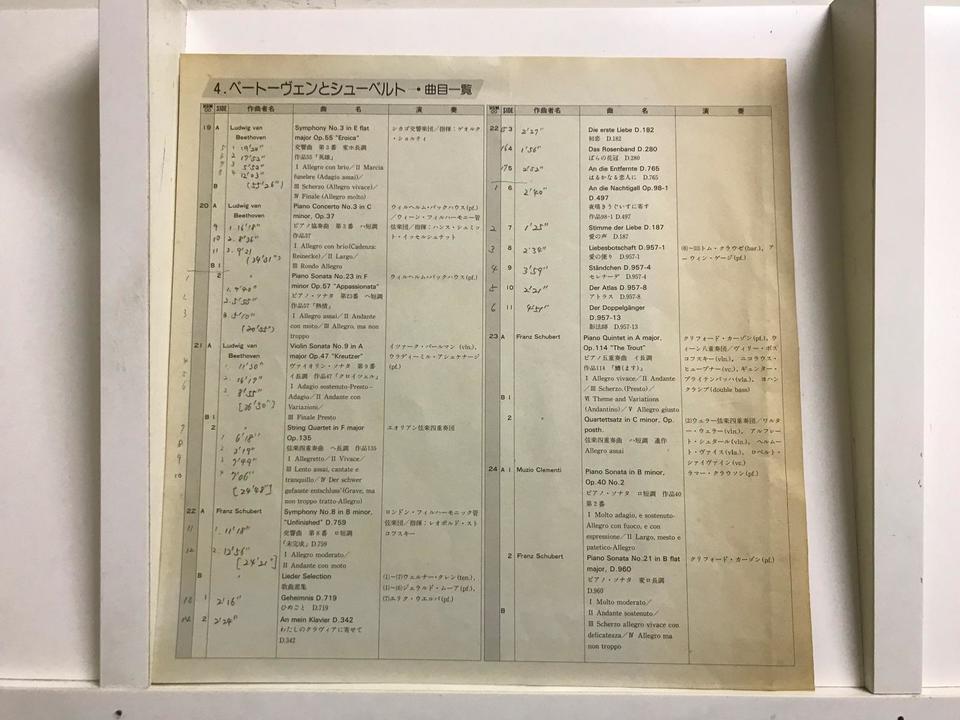 4.ベートーヴェンとシューベルト→曲目一覧
SIDE 作曲者名 曲 名 演 奏
19 A Ludwig van Beethoven
Symphony No.3 in E flat
major Op.55 "Eroica"
交響曲 第3番 変ホ長調
作品55「英雄」
I Allegro con brio/II Marcia
funebre (Adagio assai)/
III Scherzo (Allegro vivace)/
IV Finale (Allegro molto)
シカゴ交響楽団/指揮:ゲオルク
・ショルティ
5 1 19'20"
6 2 17'52"
7 3 5'52"
8 4 12'03"
B (55'26")
20 A Ludwig van Beethoven
Piano Concerto No.3 in C
minor, Op.37
ピアノ協奏曲 第3番 ハ短調
作品37
I Allegro con brio(Cadenza:
Reinecke)/II Largo/
III Rondo Allegro
ウィルヘルム・バックハウス(pf.)
/ウィーン・フィルハーモニー管
弦楽団/指揮:ハンス・シュミッ
ト・イッセルシュテット
9 1. 16'18"
10 2. 8'36"
11 3. 9'21
B 1
2 〃
Piano Sonata No.23 in F
minor Op.57 "Appassionata"
ピアノ・ソナタ 第23番 ヘ短調
作品57「熱情」
I Allegro assai/II Andante
con moto/III Allegro, ma non
troppo
ウィルヘルム・バックハウス(pf.)
1 1. 9'40"
2 2. 5'55"
3 3. 5'10"
(20'55")
21 A Ludwig van Beethoven
Violin Sonata No.9 in A
major Op.47 "Kreutzer"
ヴァイオリン・ソナタ 第9番
イ長調 作品47「クロイツェル」
I Adagio sostenuto-Presto-
Adagio/II Andante con
Variazioni/
III Finale Presto
イツァーク・パールマン (vln.)、
ウラディーミル・アシュケナージ
(pf.)
4 1. 11'30"
5 2. 16'19"
6 3. 8'55"
B 1
2 〃
String Quartet in F major
Op.135
弦楽四重奏曲 ヘ長調 作品135
I Allegretto/II Vivace/
III Lento assai, cantate e
tranquillo/IV Der schwer
gefasste entschluss'(Grave, ma
non troppo tratto-Allegro)
エオリアン弦楽四重奏団
7 1 6'18"
8 2 3'19"
9 3 7'49"
10 4 7'06"
22 A Franz Schubert
Symphony No.8 in B minor,
"Unfinished" D.759
交響曲 第8番 ロ短調
「未完成」D.759
I Allegro moderato/
II Andante con moto
ロンドン・フィルハーモニック管
弦楽団/指揮:レオポルド・スト
コフスキー
11 1. 11'18"
12 2. 12'56"
[24'21"]
B 〃
Lieder Selection
歌曲選集
(1)-(7)ウェルナー・クレン(ten.)、
(1)-(6)ジェラルド・ムーア(pf.)、
(7)エリク・ウエルバ(pf.)
13 1 2'16" Geheimnis D.719
ひめごと D.719
14 2 2'24" An mein Klavier D.342
わたしのクラヴィアに寄せて
D.342
SIDE 作曲者名 曲 名 演 奏
22 15 3 2'27" Die erste Liebe D.182
初恋 D.182
16 4 1'56" Das Rosenband D.280
ばらの花冠 D.280
17 5 2'52" An die Entfernte D.765
はるかなる恋人に D.765
1 6 2'40" An die Nachtigall Op.98-1
D.497
夜鳴きうぐいすに寄す
作品98-1 D.497
2 7 1'25" Stimme der Liebe D.187
愛の声 D.187
3 8 2'38" Liebesbotschaft D.957-1
愛の便り D.957-1
(8)-(11)トム・クラウゼ(bar.)、ア
ーウィン・ゲージ(pf.)
4 9 3'59" Ständchen D.957-4
セレナーデ D.957-4
5 10 2'21" Der Atlas D.957-8
アトラス D.957-8
6 11 4'51" Der Doppelgänger
D.957-13
影法師 D.957-13
23 A Franz Schubert
Piano Quintet in A major,
Op.114 "The Trout"
ピアノ五重奏曲 イ長調
作品114「鱒(ます)」
I Allegro vivace/II Andante
/III Scherzo.(Presto)/
VI Theme and Variations
(Andantino)/V Allegro giusto
クリフォード・カーゾン(pf.)、ウ
ィーン八重奏団/ヴィリー・ボス
コフスキー(vln.)、ニコラウス・
ヒューブナー(vc.)、ギュンター・
ブライテンバッハ(vla.)、ヨハン
クランプ(double bass)
B 1
2
Quartettsatz in C minor, Op.
posth.
弦楽四重奏曲 ハ短調 遺作
Allegro assai
(2)ウェラー弦楽四重奏団/ワルタ
ー・ウェラー(vln.)、アルフレー
ト・シュタール(vln.)、ヘルムー
ト・ヴァイス(vla.)、ロベルト・
シャイヴァイン(vc.)
24 A 1 Muzio Clementi
Piano Sonata in B minor,
Op.40 No.2
ピアノ・ソナタ ロ短調 作品40
第2番
I Molto adagio, e sostenuto-
Allegro con fuoco, e con
espressione/II Largo, mesto e
patetico-Allegro
ラマー・クラウソン(pf.)
2 Franz Schubert
Piano Sonata No.21 in B flat
major, D.960
ピアノ・ソナタ 変ロ長調
D.960
I Molto moderato/
II Andante sostenuto/
III Scherzo allegro vivace con
delicatezza/IV Allegro ma
non troppo
クリフォード・カーゾン(pf.)
B